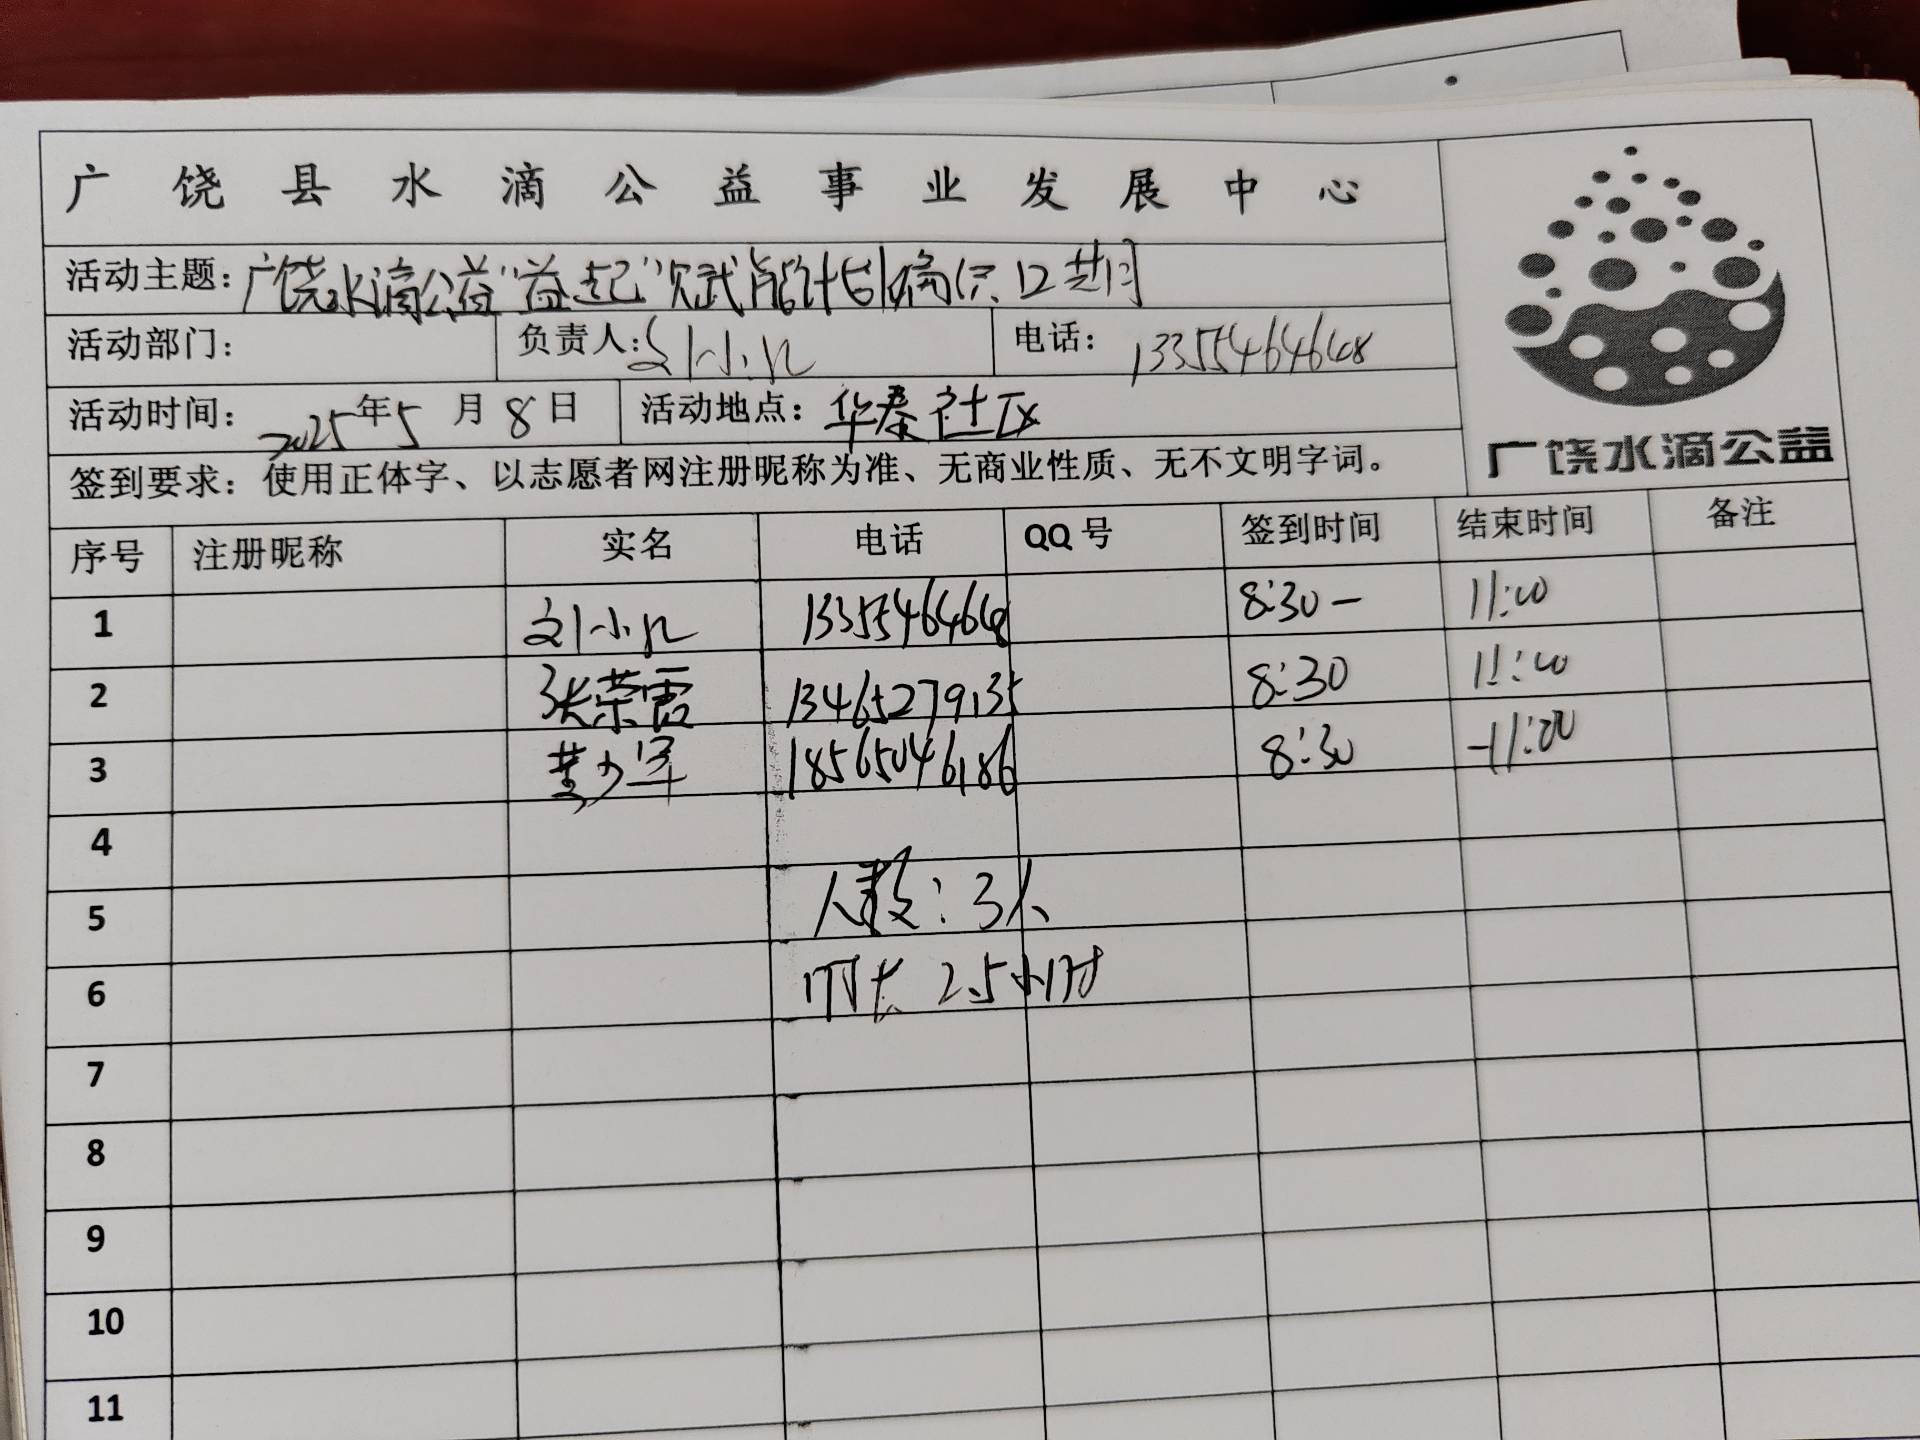 广饶县水滴公益事业发展中心
活动主题：广饶水滴公益"益起"赋能计划
活动部门： 负责人：刘小儿 电话：13355464648
活动时间：2025年5月8日 活动地点：华泰社区
广饶水滴公益
签到要求：使用正体字、以志愿者网注册昵称为准、无商业性质、无不文明字词。
序号 注册昵称 实名 电话 QQ号 签到时间 结束时间 备注
1 刘小儿 13355464648 8:30- 11:00
2 张荣霞 13465279135 8:30 11:00
3 少军 18565046186 8:30 -11:00
4
5 人数：3人
6 时长 2.5小时
7
8
9
10
11